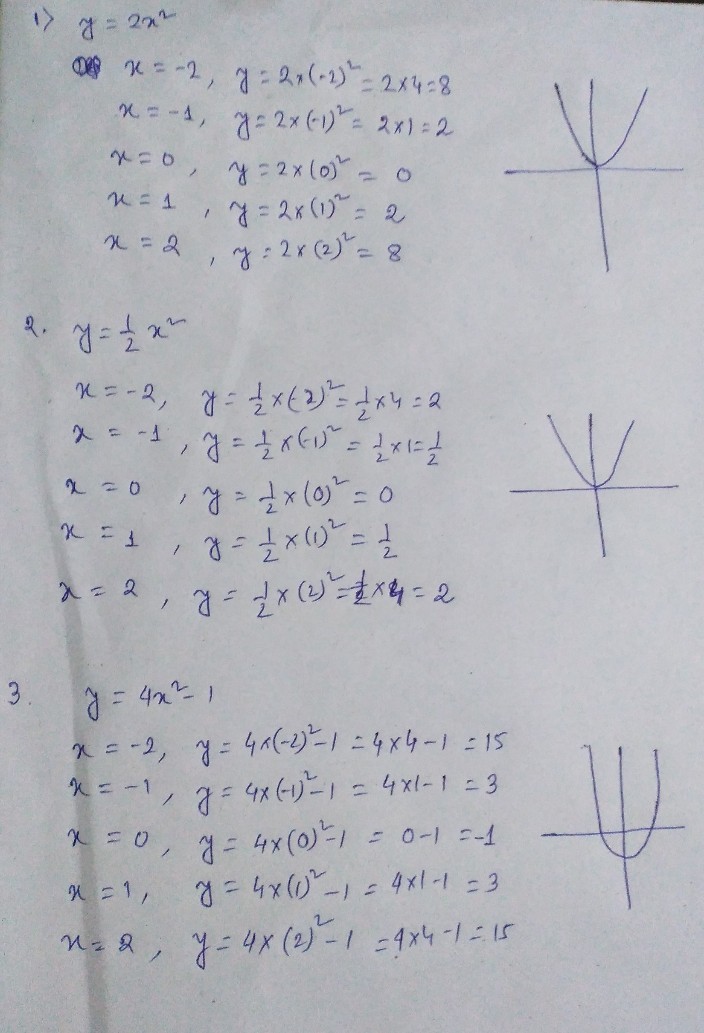 1) y = 2x²
x = -2, y = 2×(-2)² = 2×4 = 8
x = -1, y = 2×(-1)² = 2×1 = 2
x = 0, y = 2×(0)² = 0
x = 1, y = 2×(1)² = 2
x = 2, y = 2×(2)² = 8
2. y = 1/2 x²
x = -2, y = 1/2×(-2)² = 1/2×4 = 2
x = -1, y = 1/2×(-1)² = 1/2×1 = 1/2
x = 0, y = 1/2×(0)² = 0
x = 1, y = 1/2×(1)² = 1/2
x = 2, y = 1/2×(2)² = 1/2×4 = 2
3. y = 4x² - 1
x = -2, y = 4×(-2)² - 1 = 4×4 - 1 = 15
x = -1, y = 4×(-1)² - 1 = 4×1 - 1 = 3
x = 0, y = 4×(0)² - 1 = 0 - 1 = -1
x = 1, y = 4×(1)² - 1 = 4×1 - 1 = 3
x = 2, y = 4×(2)² - 1 = 4×4 - 1 = 15